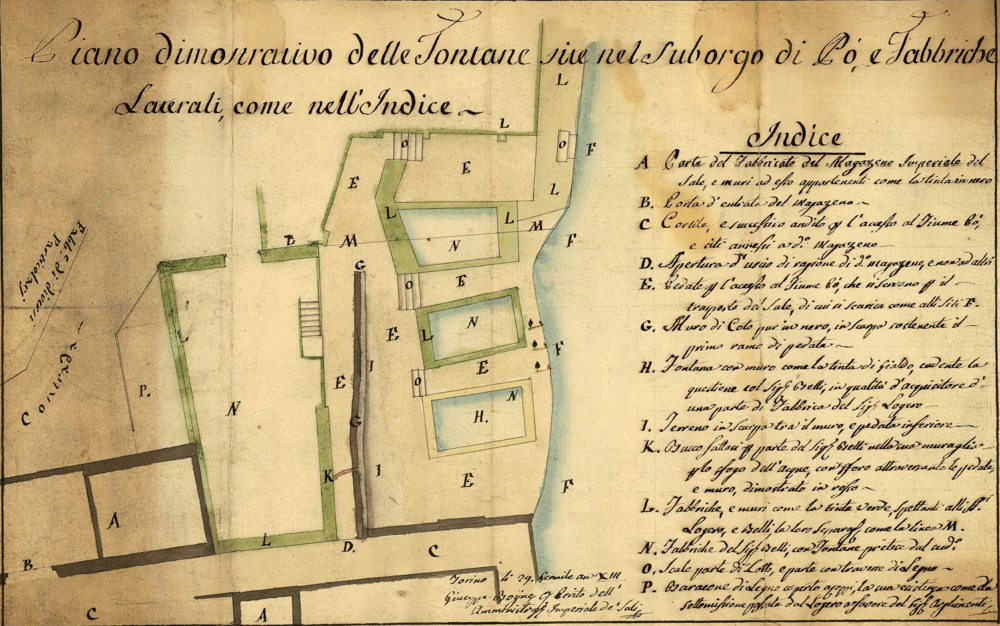 Piano dimostrativo delle Fontane site nel Suborgo di Pò, e Fabbriche
Laterali, come nell'Indice
Indice
A Parte del Fabbricato del Magazeno Imperiale del
Sale, e muri ad esso appartenenti come la tinta in nero
B. Porta d'entrata del Magazeno
C Cortile, e successivo andito p l'accesso al Fiume Pò,
e siti annessi a d.º Magazeno
D. Apertura d'uscio di ragione di d.º magazeno, e non ad altri
E. Pedate p l'accesso al Fiume Pò, che si servono p il
trasporto del Sale, di cui si scarica come alli Siti F.
G. Muro di Coto pur in nero, in scarpa sostenente il
primo ramo di pedata
H. Fontana con muro come la tinta di gialdo, cadente la
questione col Sig. Belli, in qualità d'acquisitore d'
una parte di Fabbrica del Sig. Logero
I. Terreno in Scarpa tra il muro, e pedata inferiore
K. Bucco fattosi p parte del Sig. Belli nella sua muraglia
p lo sfogo dell'acque, con sforo attraversante le pedate,
e muro, dimostrato in rosso
L. Fabbriche, e muri come la tinta verde, spettanti alli
Logero, e Belli, la loro separaz. come la linea M.
N. Fabbriche del Sig. Belli, con Fontane pretese dal
O. Scale parte di Lotte, e parte con traverse di Legno
P. Baracone di Legno coperto la cui esistenza come da
sottomissione passata dal Logero a favore del
Fabb.e di diversi
Particolari
e Cammino
L
L
O
L
O
F
E
E
L
L
L
M
F
B
M
N
G
O
E
N
E
L
F
I
P.
N
E
O
E
N
C
G
H.
K
I
E
F
A
L
D.
C
B.
C
A
Torino li 29. Gennile an XIII
Giuseppe Perito dell'
Amministr. Imperiale de' Sali